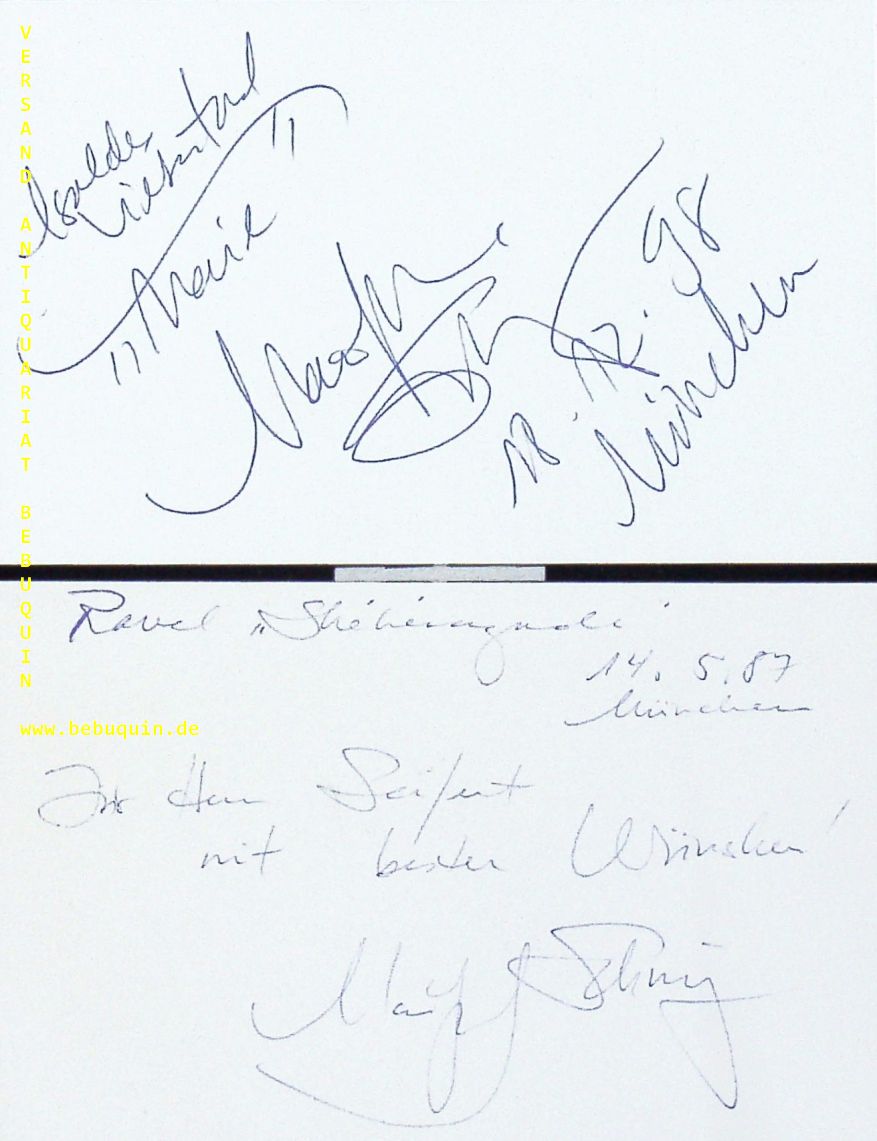 VERSAND ANTIQUARIAT BEBUQUIN
www.bebuquin.de
Isoldes
Liebestod
"Maria"
98
München
Ravel „Shéhérazade"
14. 5. 87
München
Für Herrn Seifert
mit besten Wünschen!